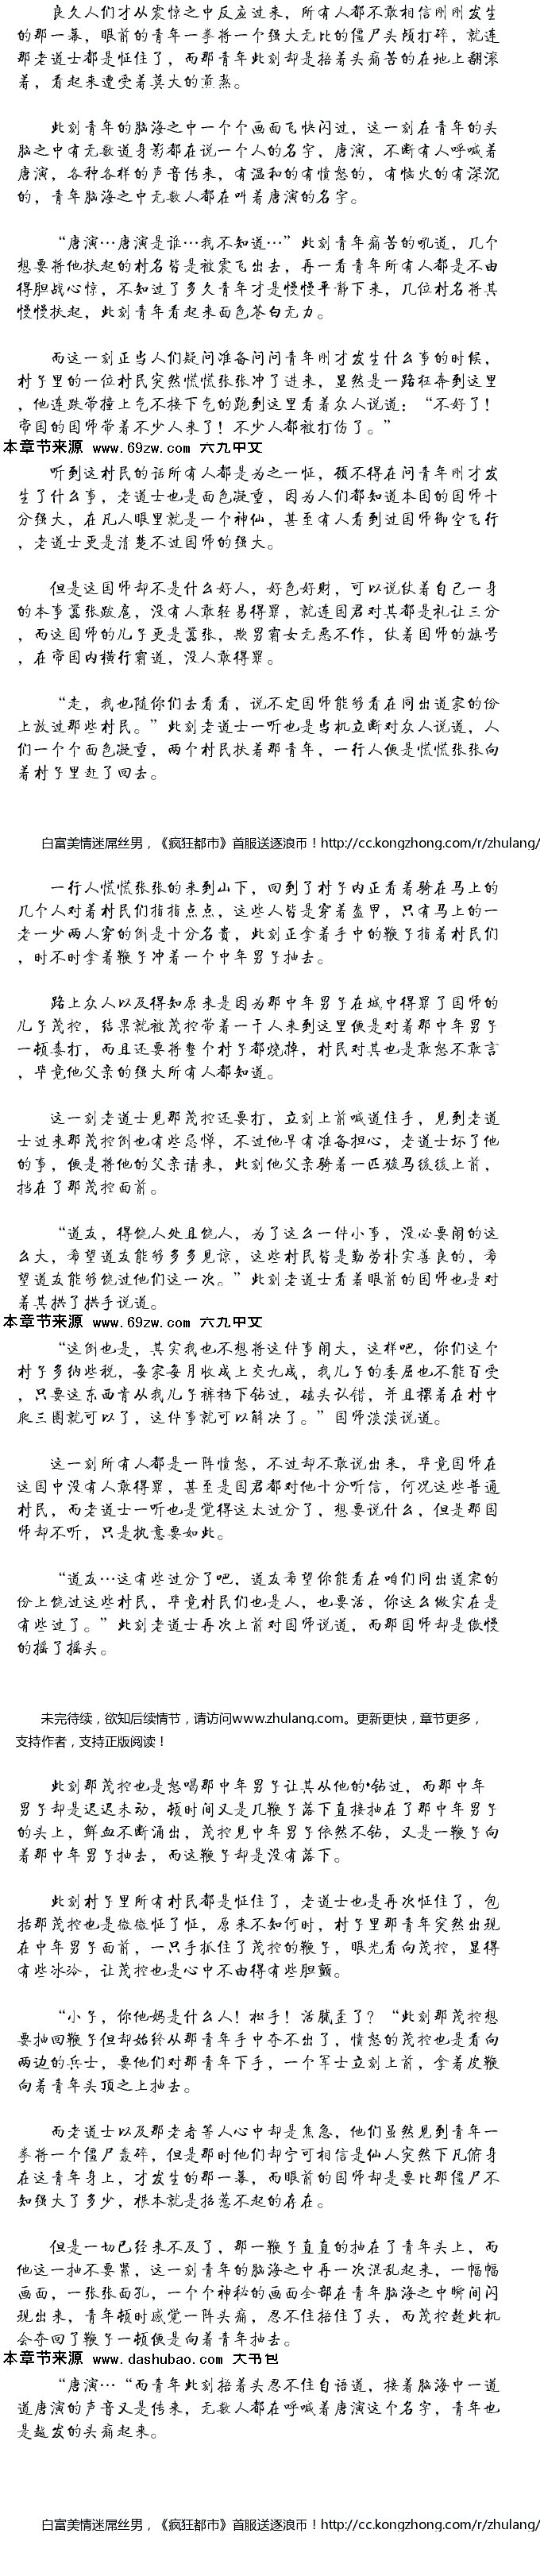 良久人们才从震惊之中反应过来，所有人都不敢相信刚刚发生
的那一幕，眼前的青年一拳将一个强大无比的僵尸头颅打碎，就连
那老道士都是怔住了，而那青年此刻却是抬着头痛苦的在地上翻滚
着，看起来遭受着莫大的煎熬。
此刻青年的脑海之中一个个画面飞快闪过，这一刻在青年的头
脑之中有无数道身影都在说一个人的名字，唐演，不断有人呼喊着
唐演，各种各样的声音传来，有温和的有愤怒的，有恼火的有深沉
的，青年脑海之中无数人都在叫着唐演的名字。
“唐演…唐演是谁…我不知道…”此刻青年痛苦的吼道，几个
想要将他扶起的村名皆是被震飞出去，再一看青年所有人都是不由
得胆战心惊，不知过了多久青年才是慢慢平静下来，几位村名将其
慢慢扶起，此刻青年看起来面色苍白无力。
而这一刻正当人们疑问准备问问青年刚才发生什么事的时候，
村子里的一位村民突然慌慌张张冲了进来，显然是一路狂奔到这里
，他连跌带撞上气不接下气的跑到这里看着众人说道：“不好了！
帝国的国师带着不少人来了！不少人都被打伤了。”
本章节来源 www.69zw.com 六九中文
听到这村民的话所有人都是为之一怔，顾不得在问青年刚才发
生了什么事，老道士也是面色凝重，因为人们都知道本国的国师十
分强大，在凡人眼里就是一个神仙，甚至有人看到过国师御空飞行
，老道士更是清楚不过国师的强大。
但是这国师却不是什么好人，好色好财，可以说仗着自己一身
的本事嚣张跋扈，没有人敢轻易得罪，就连国君对其都是礼让三分
，而这国师的儿子更是嚣张，欺男霸女无恶不作，仗着国师的旗号
，在帝国内横行霸道，没人敢得罪。
“走，我也随你们去看看，说不定国师能够看在同出道家的份
上放过那些村民。”此刻老道士一听也是当机立断对众人说道，人
们一个个面色凝重，两个村民扶着那青年，一行人便是慌慌张张向
着村子里赶了回去。
白富美情迷屌丝男，《疯狂都市》首服送逐浪币！http://cc.kongzhong.com/r/zhulang/
一行人慌慌张张的来到山下，回到了村子内正看着骑在马上的
几个人对着村民们指指点点，这些人皆是穿着盔甲，只有马上的一
老一少两人穿的倒是十分名贵，此刻正拿着手中的鞭子指着村民们
，时不时拿着鞭子冲着一个中年男子抽去。
路上众人以及得知原来是因为那中年男子在城中得罪了国师的
儿子茂控，结果就被茂控带着一干人来到这里便是对着那中年男子
一顿毒打，而且还要将整个村子都烧掉，村民对其也是敢怒不敢言
，毕竟他父亲的强大所有人都知道。
这一刻老道士见那茂控还要打，立刻上前喊道住手，见到老道
士过来那茂控倒也有些忌惮，不过他早有准备担心，老道士坏了他
的事，便是将他的父亲请来，此刻他父亲骑着一匹骏马缓缓上前，
挡在了那茂控面前。
“道友，得饶人处且饶人，为了这么一件小事，没必要闹的这
么大，希望道友能够多多见谅，这些村民皆是勤劳朴实善良的，希
望道友能够饶过他们这一次。”此刻老道士看着眼前的国师也是对
着其拱了拱手说道。
本章节来源 www.69zw.com 六九中文
“这倒也是，其实我也不想将这件事闹大，这样吧，你们这个
村子多纳些税，每家每月收成上交九成，我儿子的委屈也不能百受
，只要这东西肯从我儿子裤裆下钻过，磕头认错，并且裸着在村中
爬三圈就可以了，这件事就可以解决了。”国师淡淡说道。
这一刻所有人都是一阵愤怒，不过却不敢说出来，毕竟国师在
这国中没有人敢得罪，甚至是国君都对他十分听信，何况这些普通
村民，而老道士一听也是觉得这太过分了，想要说什么，但是那国
师却不听，只是执意要如此。
“道友…这有些过分了吧，道友希望你能看在咱们同出道家的
份上饶过这些村民，毕竟村民们也是人，也要活，你这么做实在是
有些过了。”此刻老道士再次上前对国师说道，而那国师却是傲慢
的摇了摇头。
未完待续，欲知后续情节，请访问www.zhulang.com。更新更快，章节更多，
支持作者，支持正版阅读！
此刻那茂控也是怒喝那中年男子让其从他的•钻过，而那中年
男子却是迟迟未动，顿时间又是几鞭子落下直接抽在了那中年男子
的头上，鲜血不断涌出，茂控见中年男子依然不钻，又是一鞭子向
着那中年男子抽去，而这鞭子却是没有落下。
此刻村子里所有村民都是怔住了，老道士也是再次怔住了，包
括那茂控也是微微怔了怔，原来不知何时，村子里那青年突然出现
在中年男子面前，一只手抓住了茂控的鞭子，眼光看向茂控，显得
有些冰冷，让茂控也是心中不由得有些胆颤。
“小子，你他妈是什么人！松手！活腻歪了？“此刻那茂控想
要抽回鞭子但却始终从那青年手中夺不出了，愤怒的茂控也是看向
两边的兵士，要他们对那青年下手，一个军士立刻上前，拿着皮鞭
向着青年头顶之上抽去。
而老道士以及那老者等人心中却是焦急，他们虽然见到青年一
拳将一个僵尸轰碎，但是那时他们却宁可相信是仙人突然下凡俯身
在这青年身上，才发生的那一幕，而眼前的国师却是要比那僵尸不
知强大了多少，根本就是招惹不起的存在。
但是一切已经来不及了，那一鞭子直直的抽在了青年头上，而
他这一抽不要紧，这一刻青年的脑海之中再一次混乱起来，一幅幅
画面，一张张面孔，一个个神秘的画面全部在青年脑海之中瞬间闪
现出来，青年顿时感觉一阵头痛，忍不住抬住了头，而茂控趁此机
会夺回了鞭子一顿便是向着青年抽去。
本章节来源 www.dashubao.com 大书包
“唐演…“而青年此刻抬着头忍不住自语道，接着脑海中一道
道唐演的声音又是传来，无数人都在呼喊着唐演这个名字，青年也
是越发的头痛起来。
白富美情迷屌丝男，《疯狂都市》首服送逐浪币！http://cc.kongzhong.com/r/zhulang/